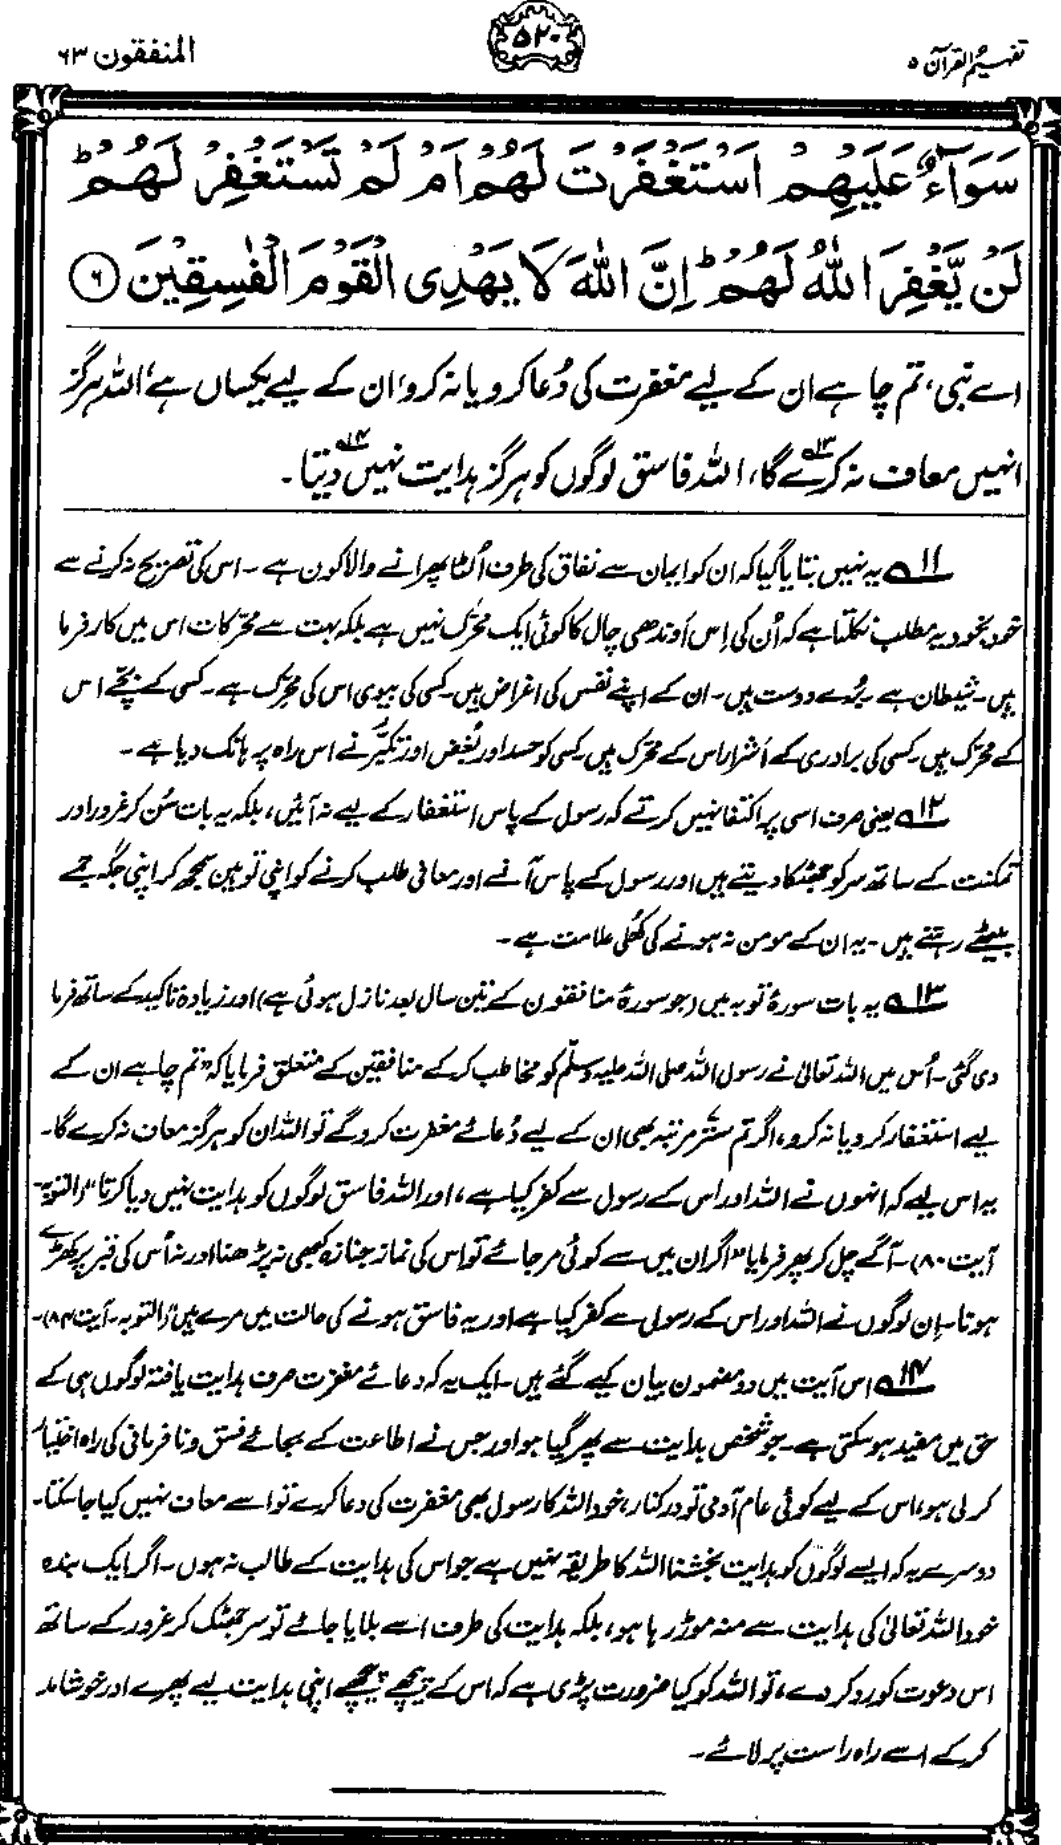 تفہیم القرآن ۵
۵۲۰
المنٰفقون ۶۳
سَوَآءٌ عَلَيْهِمْ اَسْتَغْفَرْتَ لَهُمْ اَمْ لَمْ تَسْتَغْفِرْ لَهُمْ ؕ
لَنْ يَّغْفِرَ اللّٰهُ لَهُمْ ؕ اِنَّ اللّٰهَ لَا يَهْدِى الْقَوْمَ الْفٰسِقِيْنَ ۶
اے نبی، تم چاہے ان کے لیے مغفرت کی دُعا کرو یا نہ کرو، ان کے لیے یکساں ہے، اللہ ہرگز
انہیں معاف نہ کرے ۱۳؎ گا، اللہ فاسق لوگوں کو ہرگز ہدایت نہیں ۱۴؎ دیتا۔
۱۱؎ یہ نہیں بتایا گیا کہ ان کو ایمان سے نفاق کی طرف اُلٹا پھرانے والا کون ہے۔ اس کی تصریح نہ کرنے سے
خود بخود یہ مطلب نکلتا ہے کہ اُن کی اِس اَوندھی چال کا کوئی ایک محرّک نہیں ہے بلکہ بہت سے محرّکات اس میں کارفرما
ہیں۔ شیطان ہے۔ بُرے دوست ہیں۔ ان کے اپنے نفس کی اغراض ہیں۔ کسی کی بیوی اس کی محرّک ہے۔ کسی کے بچّے اس
کے محرّک ہیں۔ کسی کی برادری کے اَشرار اس کے محرّک ہیں۔ کسی کو حسد اور بُغض اور تکبُّر نے اس راہ پر ہانک دیا ہے۔
۱۲؎ یعنی صرف اسی پر اکتفا نہیں کرتے کہ رسول کے پاس استغفار کے لیے نہ آئیں، بلکہ یہ بات سُن کر غرور اور
تمکنت کے ساتھ سر کو جھٹکا دیتے ہیں اور رسول کے پاس آنے اور معافی طلب کرنے کو اپنی توہین سمجھ کر اپنی جگہ جمے
بیٹھے رہتے ہیں۔ یہ ان کے مومن نہ ہونے کی کُھلی علامت ہے۔
۱۳؎ یہ بات سورۂ توبہ میں (جو سورۂ منافقون کے تین سال بعد نازل ہوئی ہے) اور زیادہ تاکید کے ساتھ فرما
دی گئی۔ اُس میں اللہ تعالیٰ نے رسول اللہ صلی اللہ علیہ وسلّم کو مخاطب کر کے منافقین کے متعلق فرمایا کہ ”تم چاہے ان کے
لیے استغفار کرو یا نہ کرو، اگر تم ستّر مرتبہ بھی ان کے لیے دُعائے مغفرت کرو گے تو اللہ ان کو ہرگز معاف نہ کرے گا۔
یہ اس لیے کہ انہوں نے اللہ اور اس کے رسول سے کفر کیا ہے، اور اللہ فاسق لوگوں کو ہدایت نہیں دیا کرتا“ (التوبہ۔
آیت ۸۰)۔ آگے چل کر پھر فرمایا ”اگر ان میں سے کوئی مر جائے تو اس کی نماز جنازہ کبھی نہ پڑھنا اور نہ اُس کی قبر پر کھڑے
ہونا۔ اِن لوگوں نے اللہ اور اس کے رسول سے کفر کیا ہے اور یہ فاسق ہونے کی حالت میں مرے ہیں“ (التوبہ۔ آیت ۸۴)۔
۱۴؎ اس آیت میں دو مضمون بیان کیے گئے ہیں۔ ایک یہ کہ دعائے مغفرت صرف ہدایت یافتہ لوگوں ہی کے
حق میں مفید ہو سکتی ہے۔ جو شخص ہدایت سے پھر گیا ہو اور جس نے اطاعت کے بجائے فسق و نافرمانی کی راہ اختیار
کر لی ہو، اس کے لیے کوئی عام آدمی تو درکنار، خود اللہ کا رسول بھی مغفرت کی دعا کرے تو اسے معاف نہیں کیا جا سکتا۔
دوسرے یہ کہ ایسے لوگوں کو ہدایت بخشنا اللہ کا طریقہ نہیں ہے جو اس کی ہدایت کے طالب نہ ہوں۔ اگر ایک بندہ
خود اللہ تعالیٰ کی ہدایت سے منہ موڑ رہا ہو، بلکہ ہدایت کی طرف اسے بلایا جائے تو سر جھٹک کر غرور کے ساتھ
اس دعوت کو رد کر دے، تو اللہ کو کیا ضرورت پڑی ہے کہ اس کے پیچھے پیچھے اپنی ہدایت لیے پھرے اور خوشامد
کر کے اسے راہ راست پر لائے۔